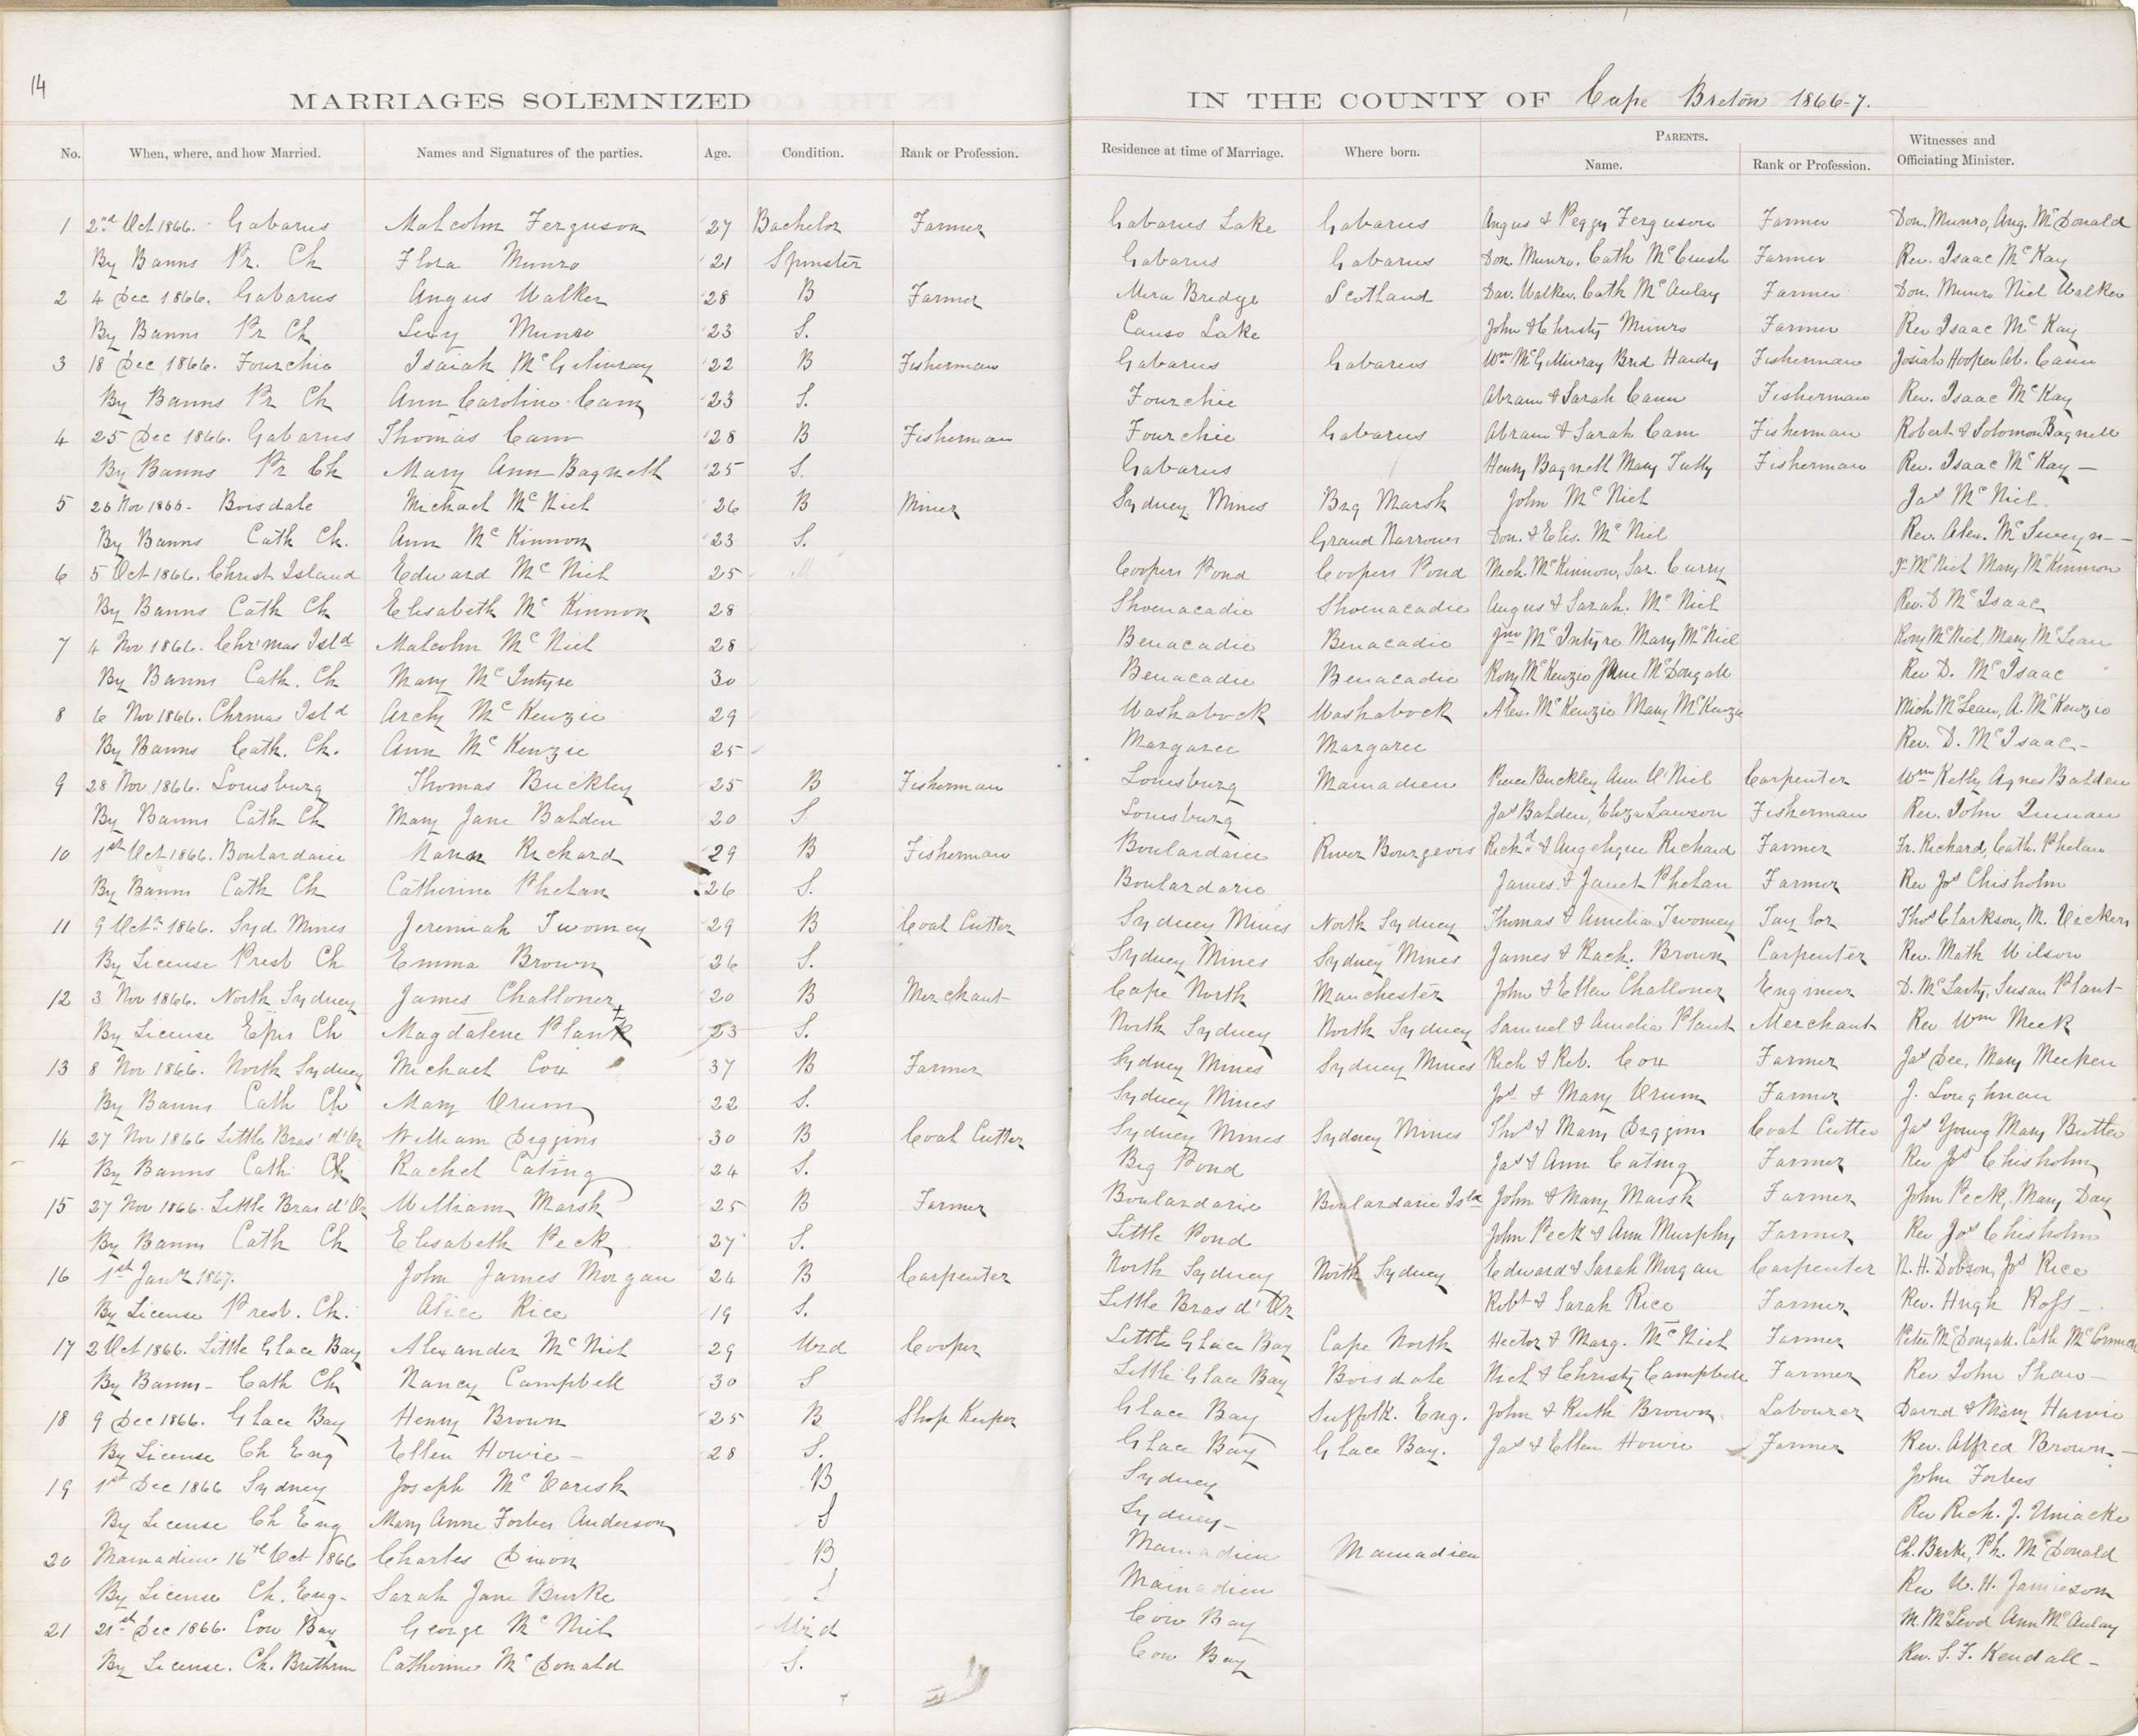 14
MARRIAGES SOLEMNIZED IN THE COUNTY OF Cape Breton 1866-7.
No. When, where, and how Married. Names and Signatures of the parties. Age. Condition. Rank or Profession. Residence at time of Marriage. Where born. PARENTS. Name. Rank or Profession. Witnesses and Officiating Minister.
1 2nd Oct 1866. Gabarus Malcolm Ferguson 27 Bachelor Farmer Gabarus Lake Gabarus Angus & Peggy Ferguson Farmer Don. Munro, Ang. McDonald
By Banns Pr. Ch Flora Munro 21 Spinster Gabarus Gabarus Don. Munro. Cath McCuish Farmer Rev. Isaac McKay
2 4 Dec 1866. Gabarus Angus Walker 28 B Farmer Mira Bridge Scotland Dav. Walker. Cath McAulay Farmer Don. Munro Niel Walker
By Banns Pr Ch Lucy Munro 23 S. Canso Lake John & Christy Munro Farmer Rev Isaac McKay
3 18 Dec 1866. Fourchie Isaiah McGilivray 22 B Fisherman Gabarus Gabarus Wm McGillivray Brid Hardy Fisherman Josiah Hooper Ab. Cann
By Banns Pr Ch Ann Caroline Cann 23 S. Fourchie Abram & Sarah Cann Fisherman Rev. Isaac McKay
4 25 Dec 1866. Gabarus Thomas Cann 28 B Fisherman Fourchie Gabarus Abram & Sarah Cann Fisherman Robert & Solomon Bagnell
By Banns Pr Ch Mary Ann Bagnell 25 S. Gabarus Henry Bagnell Mary Tutty Fisherman Rev. Isaac McKay —
5 26 Nov 1866 - Boisdale Michael McNiel 26 B Miner Sydney Mines Big Marsh John McNiel Jas McNiel
By Banns Cath Ch. Ann McKinnon 23 S. Grand Narrows Don. & Elis. McNiel Rev. Alex. McSweyn -
6 5 Oct 1866. Christ Island Edward McNiel 25 Coopers Pond Coopers Pond Mich. McKinnon, Sar. Curry J- McNiel Mary McKinnon
By Banns Cath Ch Elisabeth McKinnon 28 Shoenacadie Shoenacadie Angus & Sarah. McNiel Rev. D McIsaac
7 4 Nov 1866. Chr'mas Isld Malcolm McNiel 28 Benacadie Benacadie Jno McIntyre Mary McNiel Rory McNiel, Mary McLean
By Banns Cath. Ch Mary McIntyre 30 Benacadie Benacadie Rory McKenzie Jane McDougall Rev D. McIsaac
8 6 Nov 1866. Chrmas Isld Archy McKenzie 29 Washabock Washabock Alex. McKenzie Mary McKenzie Mich McLean, A. McKenzie
By Banns Cath. Ch. Ann McKenzie 25 Margaree Margaree Rev. D. McIsaac -
9 28 Nov 1866. Louisburg Thomas Buckley 25 B Fisherman Louisburg Mainadieu Buckley Ann O'Niel Carpenter Wm Kelly Agnes Balden
By Banns Cath Ch Mary Jane Balden 20 S Louisburg Jas Balden, Eliza Lawson Fisherman Rev. John Quinan
10 1st Oct 1866. Boulardarie Richard 29 B Fisherman Boulardarie River Bourgeois Richd. & Angelique Richard Farmer Fr. Richard, Cath. Phelan
By Banns Cath Ch Catherine Phelan 26 S. Boulardarie James & Janet Phelan Farmer Rev Jos Chisholm
11 9 Octr 1866. Syd. Mines Jeremiah Twomey 29 B Coal Cutter Sydney Mines North Sydney Thomas & Amelia Twomey Taylor Thos Clarkson, M. Vickers
By License Presb Ch Emma Brown 26 S. Sydney Mines Sydney Mines James & Rach. Brown Carpenter Rev. Math Wilson
12 3 Nov 1866. North Sydney James Challoner 20 B Merchant Cape North Manchester John & Ellen Challoner Engineer D. McLarty, Susan Plant
By License Epis Ch Magdalene Plant 23 S. North Sydney North Sydney Samuel & Amelia Plant Merchant Rev Wm Meek
13 8 Nov 1866. North Sydney Michael Cox 37 B Farmer Sydney Mines Sydney Mines Rich & Reb. Cox Farmer Jas Dee, Mary Meehen
By Banns Cath Ch Mary Orum 22 S. Sydney Mines Jos & Mary Orum Farmer J. Loughnan
14 27 Nov 1866 Little Bras' d'Or William Diggins 30 B Coal Cutter Sydney Mines Sydney Mines Thos & Mary Diggins Coal Cutter Jas Young Mary Butler
By Banns Cath Ch Rachel Cating 24 S. Big Pond Jas & Ann Cating Farmer Rev Jos Chisholm
15 27 Nov 1866. Little Bras d'Or William Marsh 25 B Farmer Boulardarie Boulardarie Isld John & Mary Marsh Farmer John Peck, Mary Day
By Banns Cath Ch Elisabeth Peck 27 S. Little Pond John Peck & Ann Murphy Farmer Rev Jos Chisholm
16 1st Jany 1867. John James Morgan 24 B Carpenter North Sydney North Sydney Edward & Sarah Morgan Carpenter R. H. Dobson, Jos Rice
By License Presb. Ch. Alice Rice 19 S. Little Bras d'Or Robt & Sarah Rice Farmer Rev. Hugh Ross -
17 2 Oct 1866. Little Glace Bay Alexander McNiel 29 Wid Cooper Little Glace Bay Cape North Hector & Marg. McNiel Farmer Peter McDougall. Cath McCormick
By Banns - Cath Ch Nancy Campbell 30 S Little Glace Bay Boisdale Niel & Christy Campbell Farmer Rev John Shaw -
18 9 Dec 1866. Glace Bay Henry Brown 25 B Shop Keeper Glace Bay Suffolk. Eng. John & Ruth Brown Labourer David & Mary Harvie
By License Ch Eng Ellen Howie - 28 S. Glace Bay Glace Bay. Jas & Ellen Howie Farmer Rev. Alfred Brown -
19 1st Dec 1866 Sydney Joseph McVarish B Sydney John Forbes
By License Ch Eng Mary Anne Forbes Anderson S Sydney - Rev Rich. J. Uniacke
20 Mainadieu 16th Oct 1866 Charles Dixon B Mainadieu Mainadieu Ch. Burke, Ph. McDonald
By License Ch. Eng - Sarah Jane Burke S Mainadieu Rev W. H. Jamieson
21 21st Dec 1866. Cow Bay George McNiel Wid Cow Bay M. McLeod Ann McAulay
By License. Ch. Brethren Catherine McDonald S. Cow Bay Rev. S. F. Kendall -